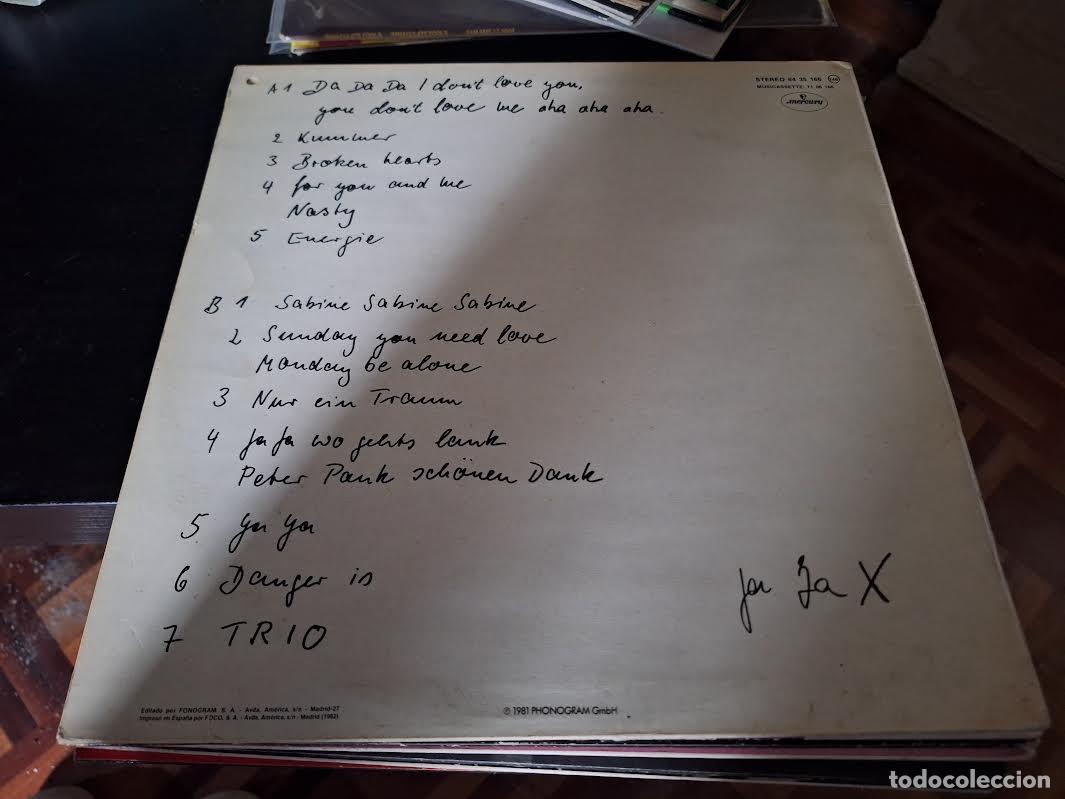 A1 Da Da Da I don't love you,
you don't love me aha aha aha.
2 Kummer
3 Broken hearts
4 for you and me
Nasty
5 Energie
B 1 Sabine Sabine Sabine
2 Sunday you need love
Monday be alone
3 Nur ein Traum
4 Ja Ja wo gehts lank
Peter Pank schönen Dank
5 Ya Ya
6 Danger is
7 TRIO
Ja Ja X
STEREO 64 35 166
MUSICASSETTE: 71 06 166
mercury
Editado por FONOGRAM, S. A. - Avda. América, s/n - Madrid-27
Impreso en España por FOCO, S. A. - Avda. América, s/n - Madrid (1982)
℗ 1981 PHONOGRAM GmbH
todocoleccion